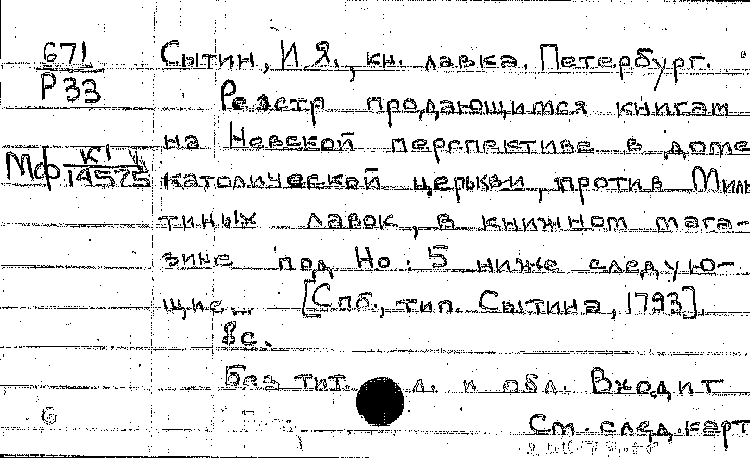 671
Р 33
Сытин, И.Я., кн. лавка. Петербург.
Реэстр продающимся книгам
на Невской перспективе в доме
Мф К1
14575
католической церькви, против Мили
тиных лавок, в книжном мага-
зине под Но: 5 ниже следую-
щие... [Спб., тип. Сытина, 1793].
8с.
Без тит. л. и обл. Входит
См. след. карт